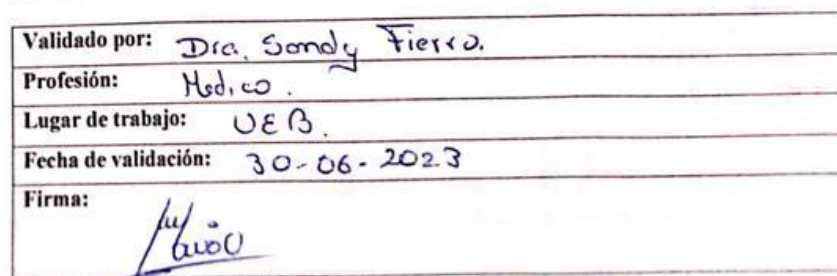 Validado por: Dra. Sandy Fierro.
Profesión: Medico.
Lugar de trabajo: UEB.
Fecha de validación: 30-06-2023
Firma: